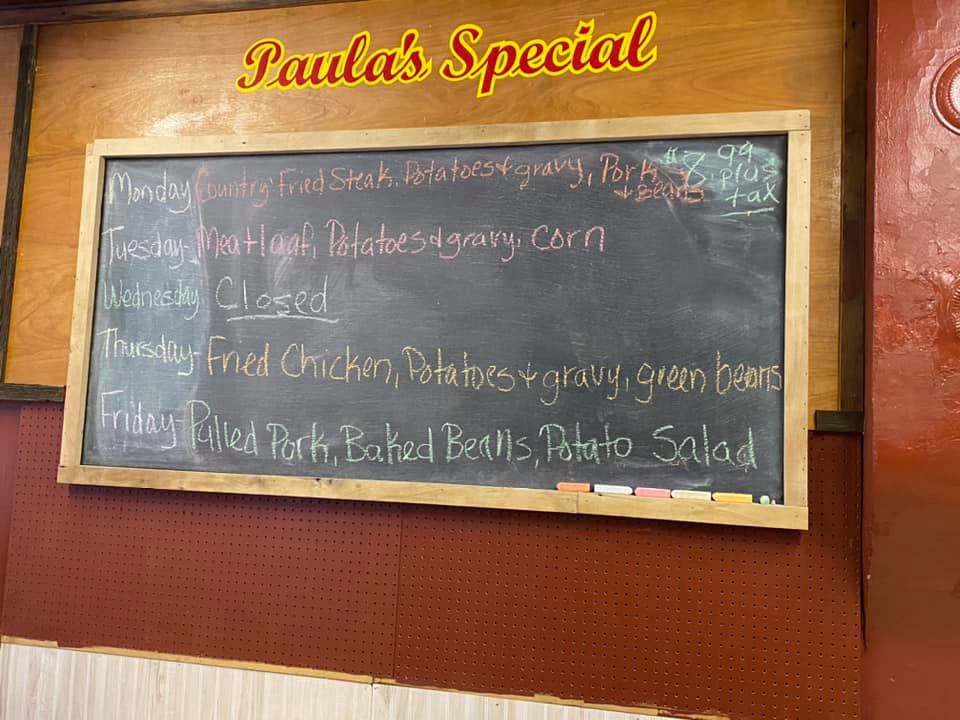 Paula's Special
Monday Country Fried Steak, Potatoes & gravy, Pork
& Beans
$8.99
plus
tax
Tuesday- Meatloaf, Potatoes & gravy, corn
Wednesday Closed
Thursday- Fried Chicken, Potatoes & gravy, green beans
Friday- Pulled Pork, Baked Beans, Potato Salad